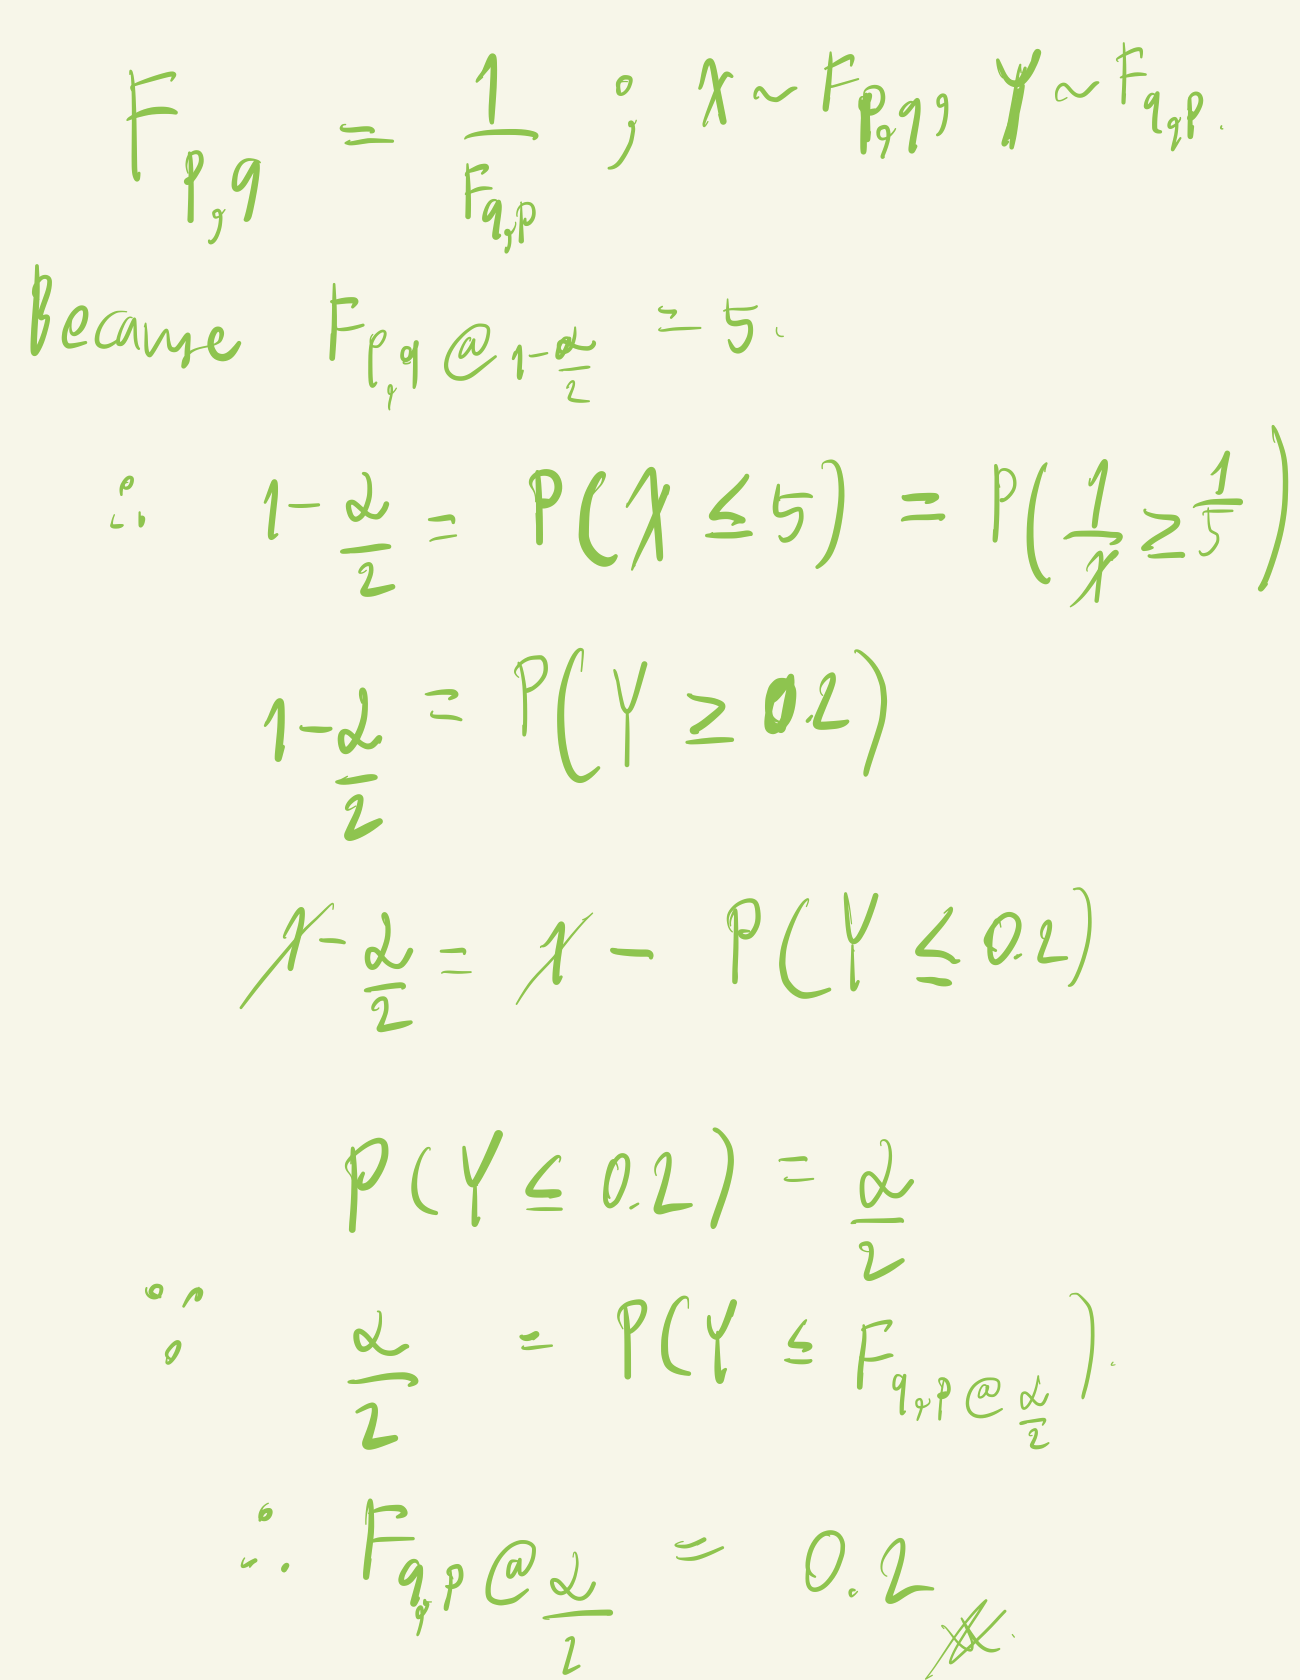 F_{p,q} = \frac{1}{F_{q,p}} ; X ~ F_{p,q}, Y ~ F_{q,p}.
Because F_{p,q @ 1-\frac{α}{2}} = 5.
∴ 1 - \frac{α}{2} = P(X ≤ 5) = P(\frac{1}{X} ≥ \frac{1}{5})
1 - \frac{α}{2} = P(Y ≥ 0.2)
1 - \frac{α}{2} = 1 - P(Y ≤ 0.2)
P(Y ≤ 0.2) = \frac{α}{2}
∵ \frac{α}{2} = P(Y ≤ F_{q,p @ \frac{α}{2}}).
∴ F_{q,p @ \frac{α}{2}} = 0.2